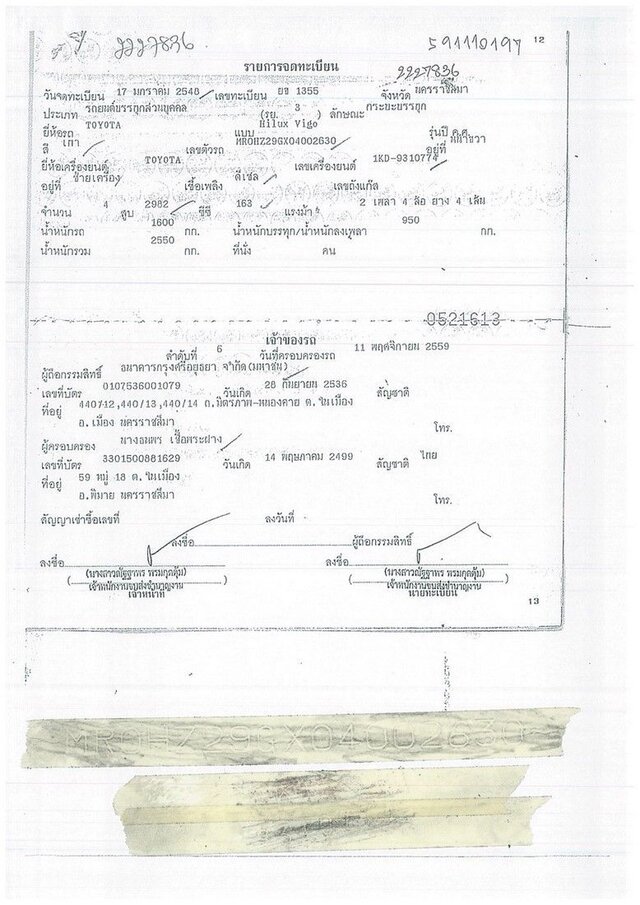 2227836
591110197 12
รายการจดทะเบียน
2227836
วันจดทะเบียน 17 มกราคม 2548 เลขทะเบียน ยช 1355 จังหวัด นครราชสีมา
ประเภท รถยนต์บรรทุกส่วนบุคคล (รย. 3 ) ลักษณะ กระบะบรรทุก
ยี่ห้อรถ TOYOTA แบบ Hilux Vigo รุ่นปี ค.ศ.
สี เทา เลขตัวรถ MROHZ29GX04002630 อยู่ที่ หน้าขวา
ยี่ห้อเครื่องยนต์ TOYOTA เลขเครื่องยนต์ 1KD-9310774
อยู่ที่ ซ้ายเครื่อง เชื้อเพลิง ดีเซล เลขถังแก๊ส
จำนวน 4 สูบ 2982 ซีซี 163 แรงม้า 2 เพลา 4 ล้อ ยาง 4 เส้น
น้ำหนักรถ 1600 กก. น้ำหนักบรรทุก/น้ำหนักลงเพลา 950 กก.
น้ำหนักรวม 2550 กก. ที่นั่ง คน
0521613
เจ้าของรถ
ลำดับที่ 6 วันที่ครอบครองรถ 11 พฤศจิกายน 2559
ผู้ถือกรรมสิทธิ์ ธนาคารกรุงศรีอยุธยา จำกัด(มหาชน)
เลขที่บัตร 0107536001079 วันเกิด 28 กันยายน 2536 สัญชาติ
ที่อยู่ 440/12,440/13,440/14 ถ.มิตรภาพ-หนองคาย ต.ในเมือง
อ.เมือง นครราชสีมา
โทร.
ผู้ครอบครอง เชื้อพระฝาง
เลขที่บัตร 3301500881629 วันเกิด 14 พฤษภาคม 2499 สัญชาติ ไทย
ที่อยู่ 59 หมู่ 18 ต.ในเมือง
อ.พิมาย นครราชสีมา
โทร.
สัญญาเช่าซื้อเลขที่ ลงวันที่
ลงชื่อ ผู้ถือกรรมสิทธิ์
ลงชื่อ ลงชื่อ
(นางสาวณัฐฐาพร พรมกุดตุ้ม) (นางสาวณัฐฐาพร พรมกุดตุ้ม)
เจ้าพนักงานขนส่งชำนาญงาน เจ้าพนักงานขนส่งชำนาญงาน
เจ้าหน้าที่ นายทะเบียน
13
MROHZ29GX04002630